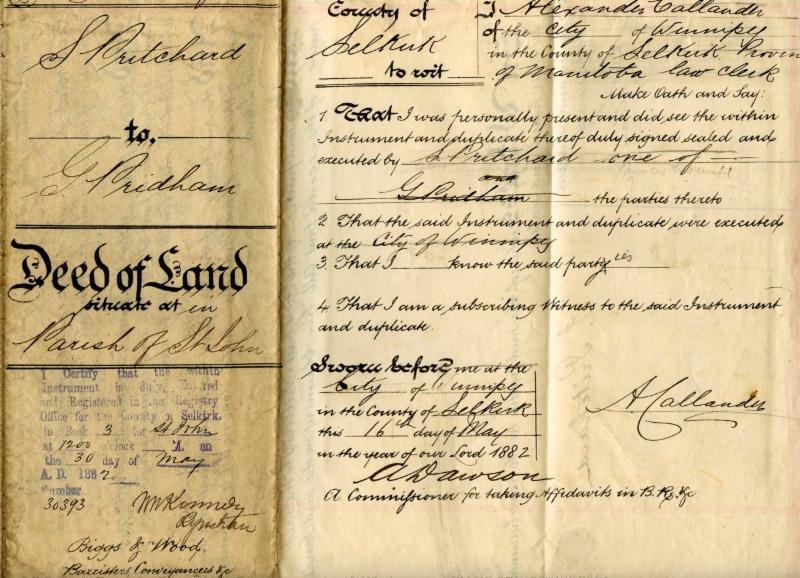 S Pritchard
to,
G. Pridham
Deed of Land
situate at in
Parish of St John
I Certify that the within
Instrument is duly Entered
and Registered in the Registry
Office for the County of Selkirk.
in Book 3 for St John
at 1200 o'clock M. on
the 30 day of May
A. D. 1882.
Number
30393
WM Kennedy
Registrar
Biggs & Wood.
Barristers, Conveyancers &c
County of
Selkirk
to wit
I Alexander Callander
of the City of Winnipeg
in the County of Selkirk Provin
of Manitoba law clerk
Make Oath and Say:
1 That I was personally present and did see the within
Instrument and duplicate thereof duly signed sealed and
executed by S. Pritchard one of
and
G Pridham the parties thereto
2 That the said Instrument and duplicate were executed
at the City of Winnipeg
3. That I know the said party ies
4 That I am a subscribing Witness to the said Instrument
and duplicate.
Sworn before me at the
City of Winnipeg
in the County of Selkirk
this 16th day of May
in the year of our Lord 1882
A Dawson
A Commissioner for taking Affidavits in B.R. &c
A Callander